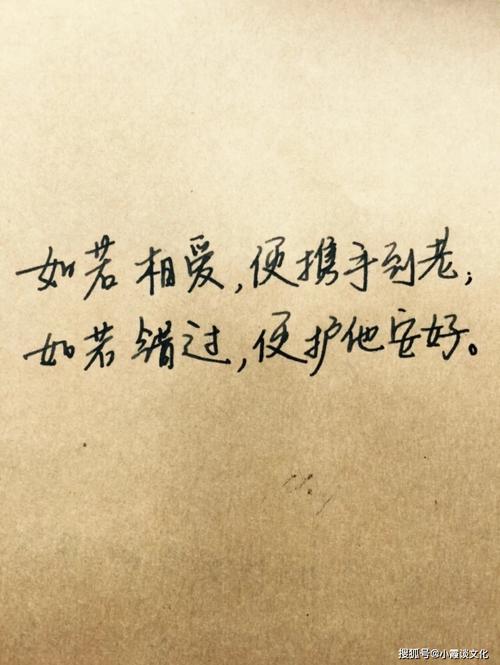 如若相爱,便携手到老;
如若错过,便护他安好。
搜狐号@小霞谈文化